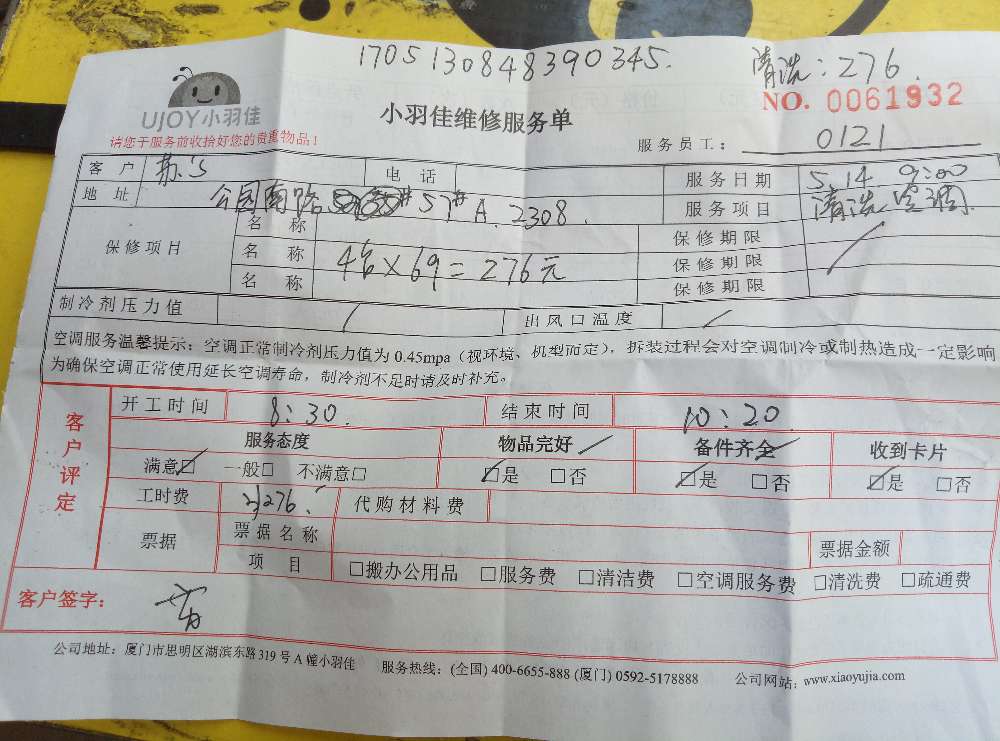 1705130848390345.
清洗:276.
UJOY小羽佳
小羽佳维修服务单
NO. 0061932
请您于服务前收拾好您的贵重物品!
服务员工: 0121
客户 苏'S 电话 服务日期 5.14 9:00
地址 公园南路 57# A.2308. 服务项目 清洗空调.
保修项目 名称 保修期限
名称 4台×69=276元 保修期限
名称 保修期限
制冷剂压力值 / 出风口温度 /
空调服务温馨提示:空调正常制冷剂压力值为 0.45mpa(视环境、机型而定),拆装过程会对空调制冷或制热造成一定影响
为确保空调正常使用延长空调寿命,制冷剂不足时请及时补充。
客户评定
开工时间 8:30. 结束时间 10:20
服务态度 物品完好 备件齐全 收到卡片
满意☑ 一般□ 不满意□ ☑是 □否 ☑是 □否 ☑是 □否
工时费 276. 代购材料费
票据 票据名称 票据金额
项目 □搬办公用品 □服务费 □清洁费 □空调服务费 □清洗费 □疏通费
客户签字:
公司地址:厦门市思明区湖滨东路319号A幢小羽佳 服务热线:(全国) 400-6655-888 (厦门) 0592-5178888 公司网站:www.xiaoyujia.com